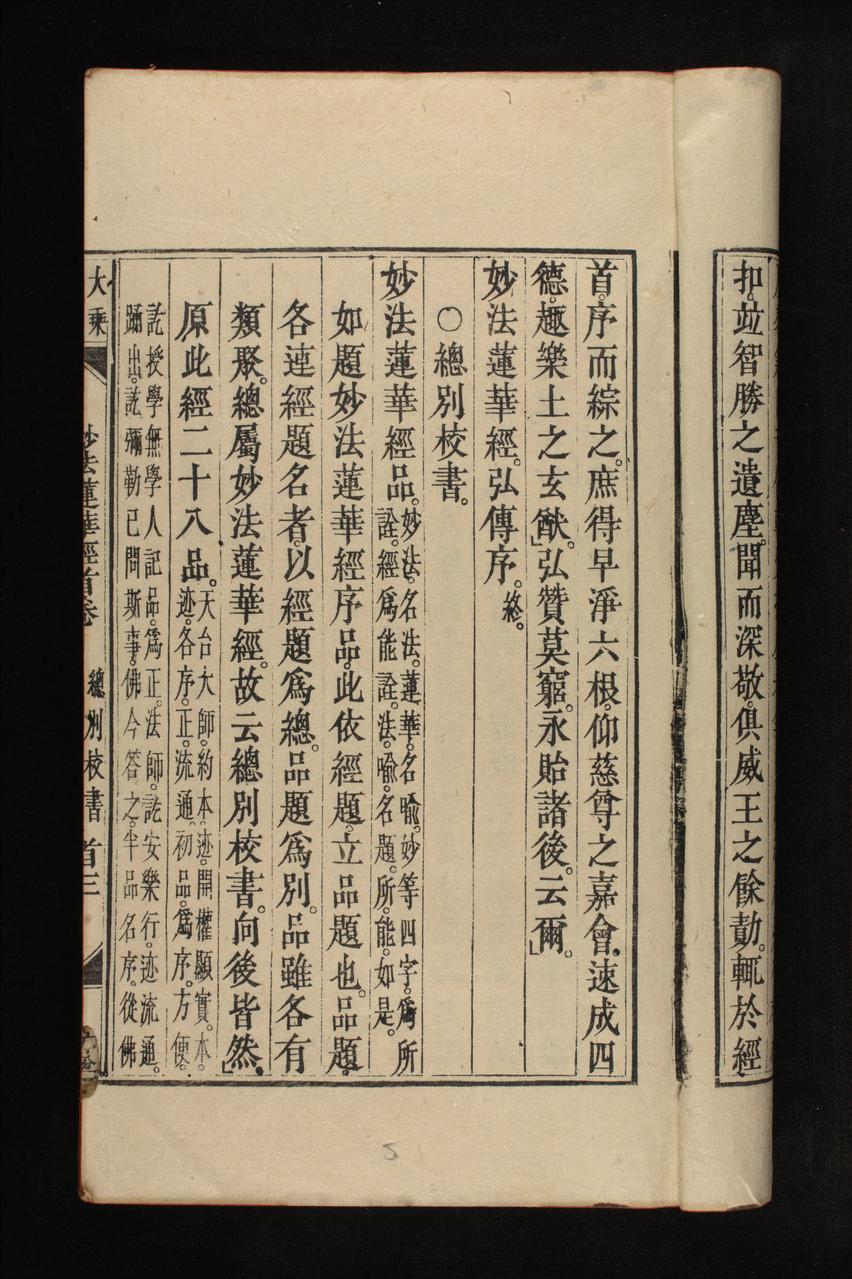 扣。竝智勝之遺塵。聞而深敬。俱威王之餘勣。輒於經
首。序而綜之。庶得早淨六根。仰慈尊之嘉會。速成四
德。趣樂土之玄猷。」弘贊莫窮。永貽諸後。云爾。」
妙法蓮華經。弘傳序。終。
〇總別校書。
妙法蓮華經品。妙法。名法。蓮華。名喻。妙等四字。爲所
詮。經爲能詮。法喻。名題。所。能。如是。
如題妙法蓮華經序品。此依經題。立品題也。品題。
各連經題名者。以經題爲總。品題爲別。品雖各有
類聚。總屬妙法蓮華經。故云總別校書。向後皆然。」
原此經二十八品。天台大師。約本迹。開權顯實。本。
迹。各序。正。流通。初品。爲序。方便。
訖授學無學人記品。爲正。法師。訖安樂行。迹流通。
踊出。訖彌勒已問斯事。佛今答之。半品名序。從佛
大乘
妙法蓮華經首卷
總別校書
首三
5